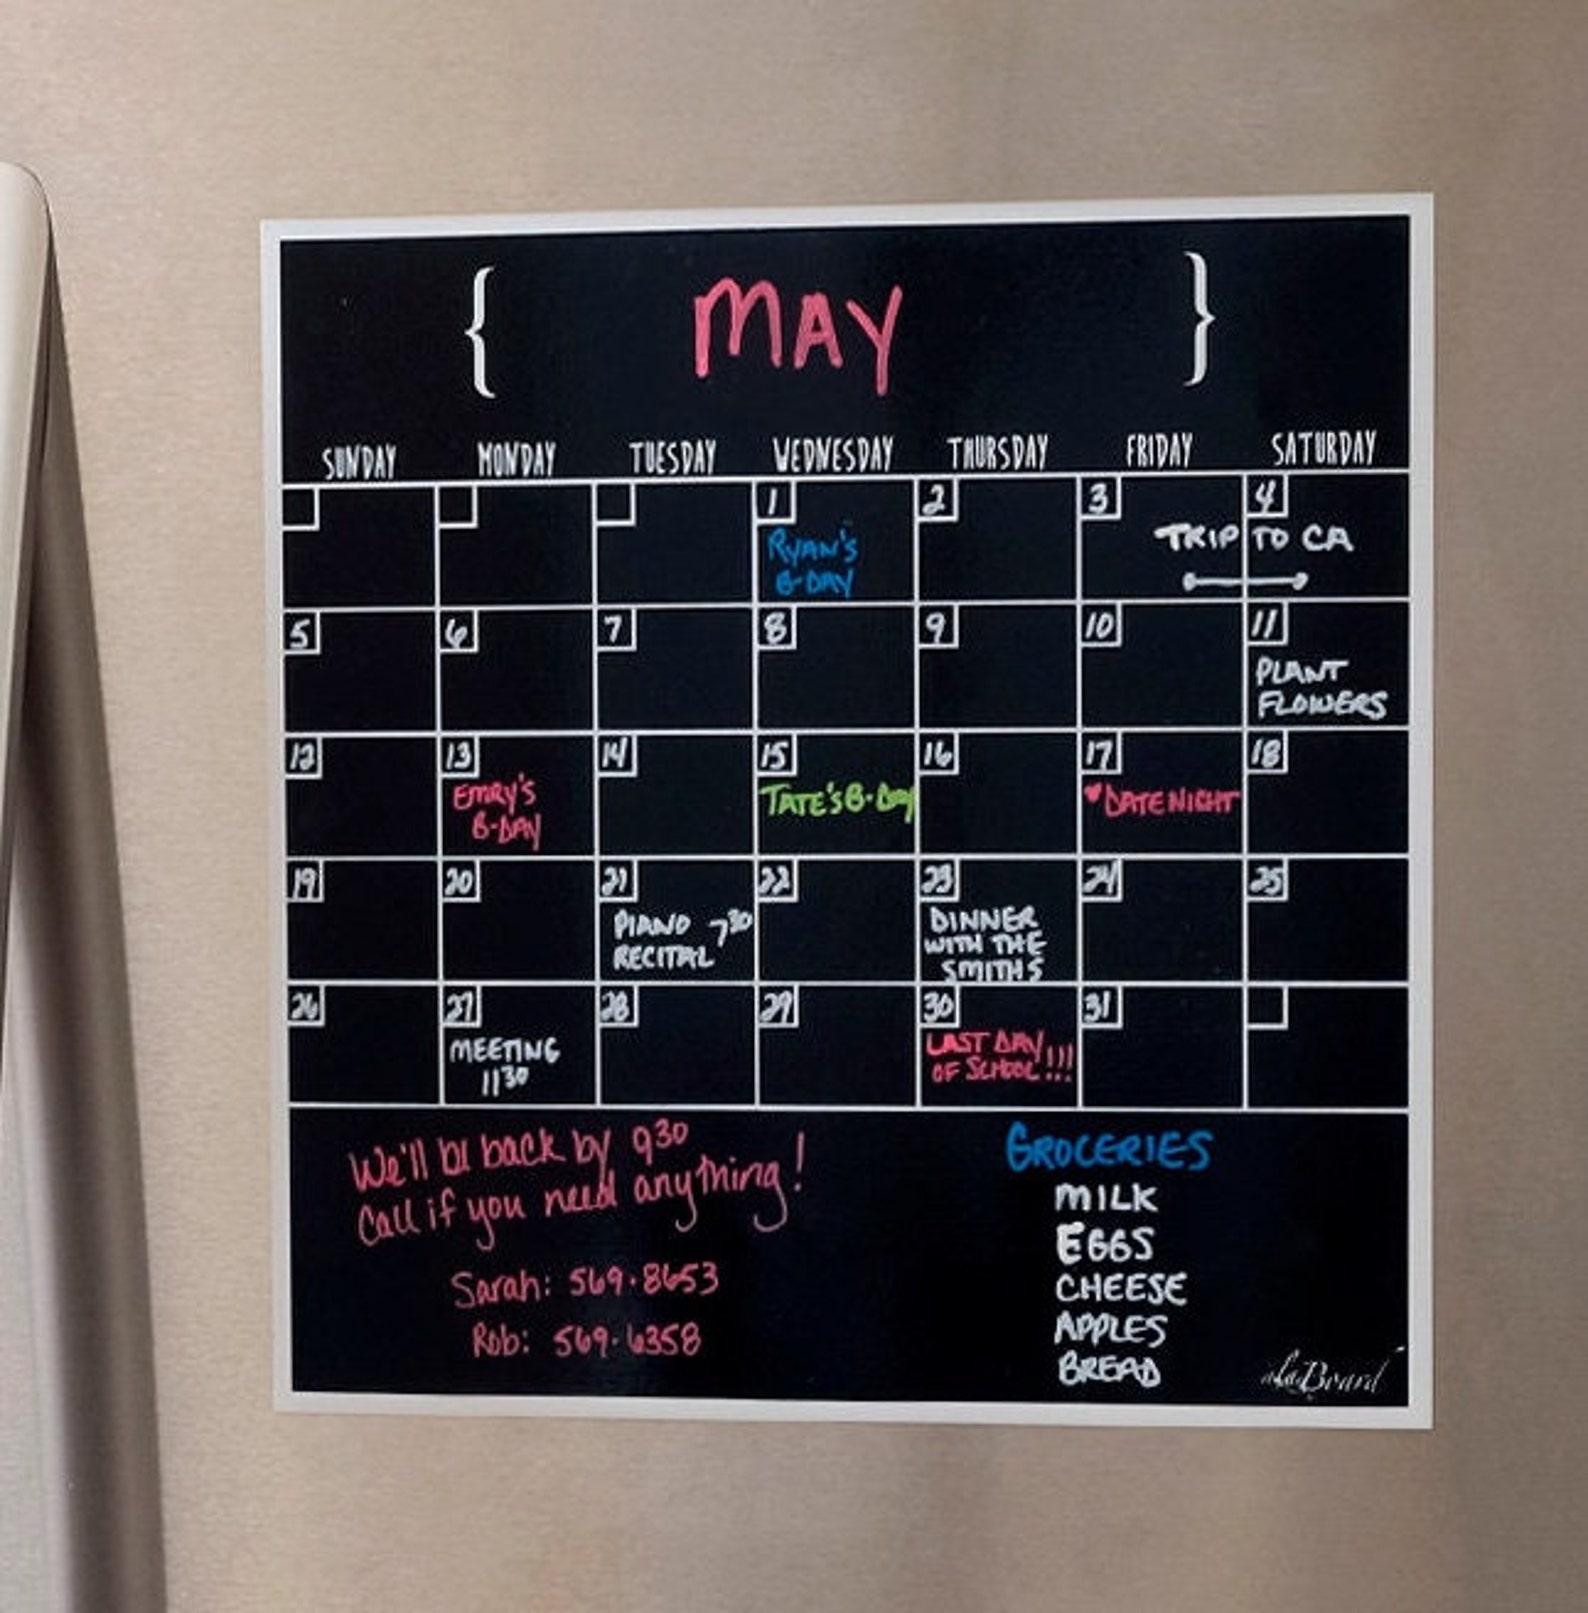 { MAY }
SUNDAY MONDAY TUESDAY WEDNESDAY THURSDAY FRIDAY SATURDAY
1 2 3 4
RYAN'S
B-DAY
TRIP TO CA
5 6 7 8 9 10 11
PLANT
FLOWERS
12 13 14 15 16 17 18
EMRY'S
B-DAY
TATE'S B-DAY
♥DATE NIGHT
19 20 21 22 23 24 25
PIANO 7:30
RECITAL
DINNER
WITH THE
SMITHS
26 27 28 29 30 31
MEETING
1130
LAST DAY
OF SCHOOL!!!
We'll be back by 930
Call if you need anything!
Sarah: 569·8653
Rob: 569·6358
GROCERIES
MILK
EGGS
CHEESE
APPLES
BREAD
alaBoard